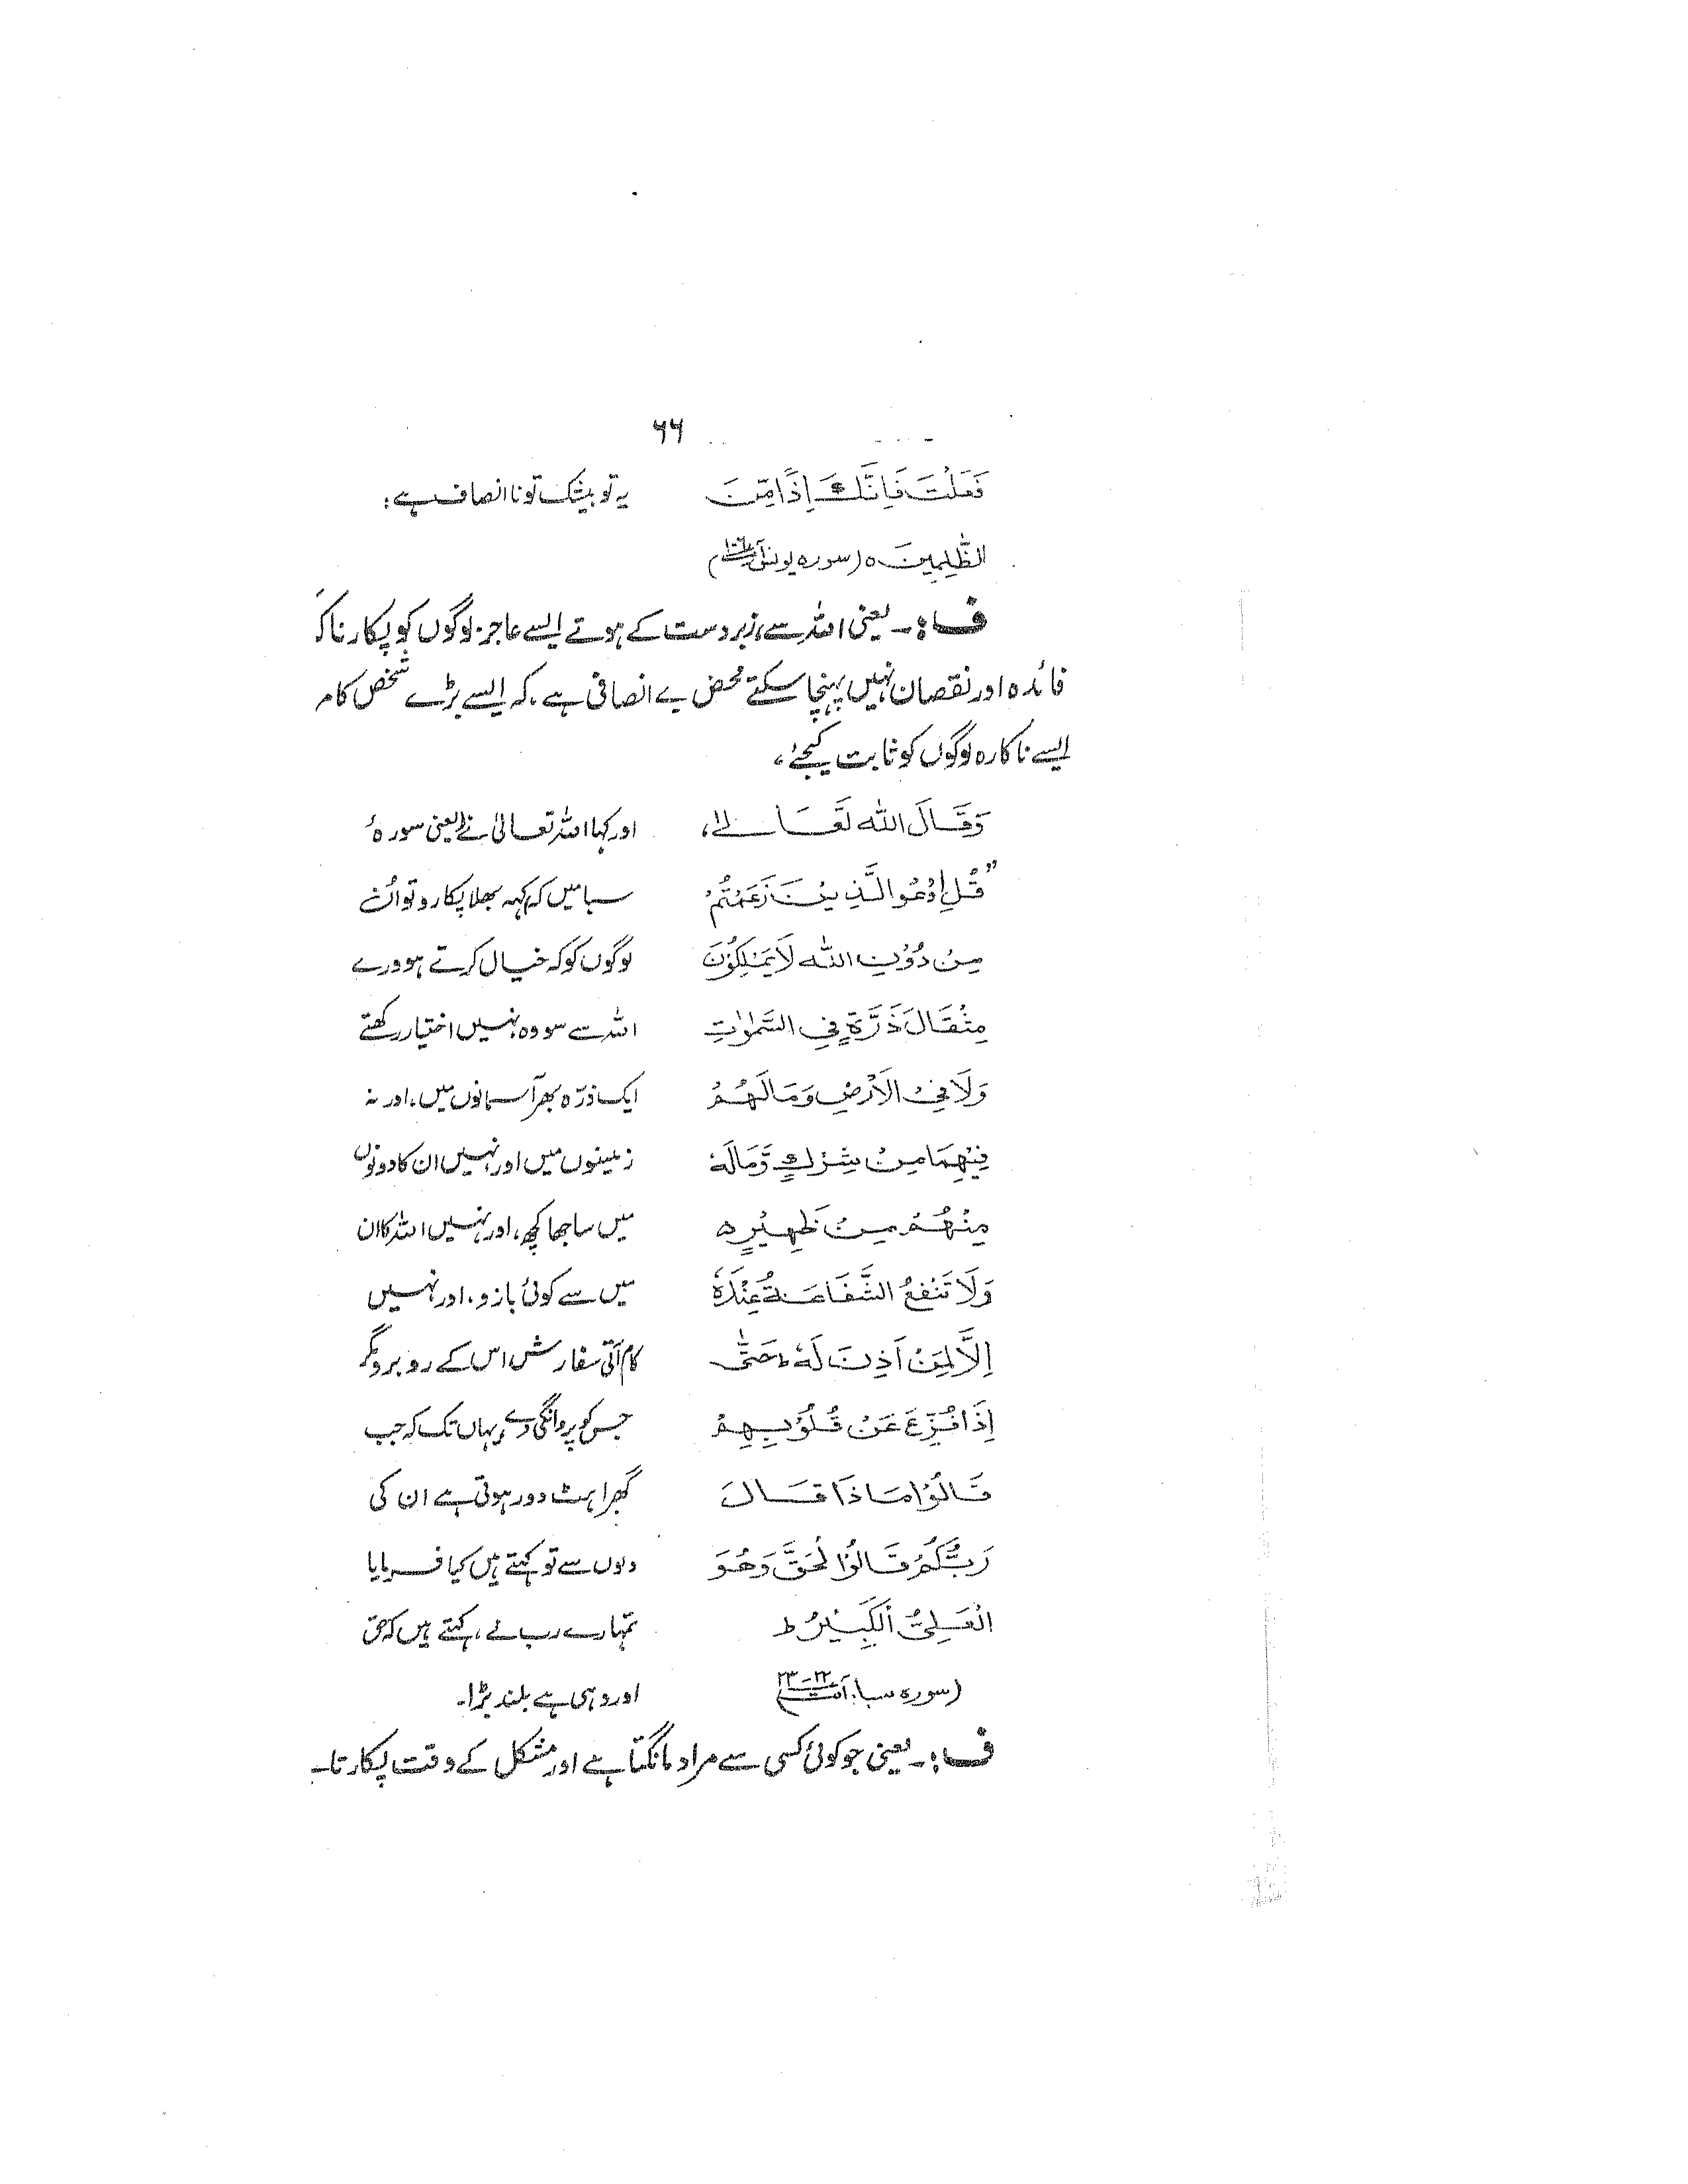 ۶۶
فَعَلْتَ فَاِنَّكَ اِذًا مِّنَ یہ تو بیشک تو نا انصاف ہے:
الظّٰلِمِیْنَ ہ (سورہ یونس آیت ۱۰۶)
ف:۔ یعنی اللہ سے زبردست کے ہوتے ایسے عاجز لوگوں کو پکارنا کہ
فائدہ اور نقصان نہیں پہنچا سکتے محض بے انصافی ہے، کہ ایسے بڑے شخص کا م
ایسے ناکارہ لوگوں کو ثابت کیجئے،
وَقَالَ اللّٰه تَعَالٰے، اور کہا اللہ تعالیٰ نے یعنی سورۂ
”قُلِ ادْعُوا الَّذِیْنَ زَعَمْتُمْ سبا میں کہ کہہ بھلا پکارو تو اُن
مِنْ دُوْنِ اللّٰه لَا یَمْلِكُوْنَ لوگوں کو کہ خیال کرتے ہو ورے
مِثْقَالَ ذَرَّةٍ فِی السَّمٰوٰتِ اللہ سے سو وہ نہیں اختیار رکھتے
وَلَا فِیْ الْاَرْضِ وَمَا لَهُمْ ایک ذرّہ بھر آسمانوں میں، اور نہ
فِیْهِمَا مِنْ شِرْكٍ وَّمَا لَهٗ زمینوں میں اور نہیں ان کا دونوں
مِنْهُمْ مِنْ ظَهِیْرٍ ہ میں ساجھا کچھ، اور نہیں اللہ کا ان
وَلَا تَنْفَعُ الشَّفَاعَةُ عِنْدَهٗ میں سے کوئی بازو، اور نہیں
اِلَّا لِمَنْ اَذِنَ لَهٗ ط حَتّٰی کام آتی سفارش اس کے روبرو مگر
اِذَا فُزِّعَ عَنْ قُلُوْبِهِمْ جس کو پروانگی دے یہاں تک کہ جب
قَالُوْا مَا ذَا قَالَ گھبراہٹ دور ہوتی ہے ان کی
رَبُّكُمْ قَالُوْا لْحَقَّ وَهُوَ دلوں سے تو کہتے ہیں کیا فرمایا
الْعَلِیُّ الْكَبِیْرُ ط تمہارے رب نے، کہتے ہیں کہ حق
(سورہ سبا، آیت ۲۲-۲۳) اور وہی ہے بلند بڑا۔
ف:۔ یعنی جو کوئی کسی سے مراد مانگتا ہے اور مشکل کے وقت پکارتا